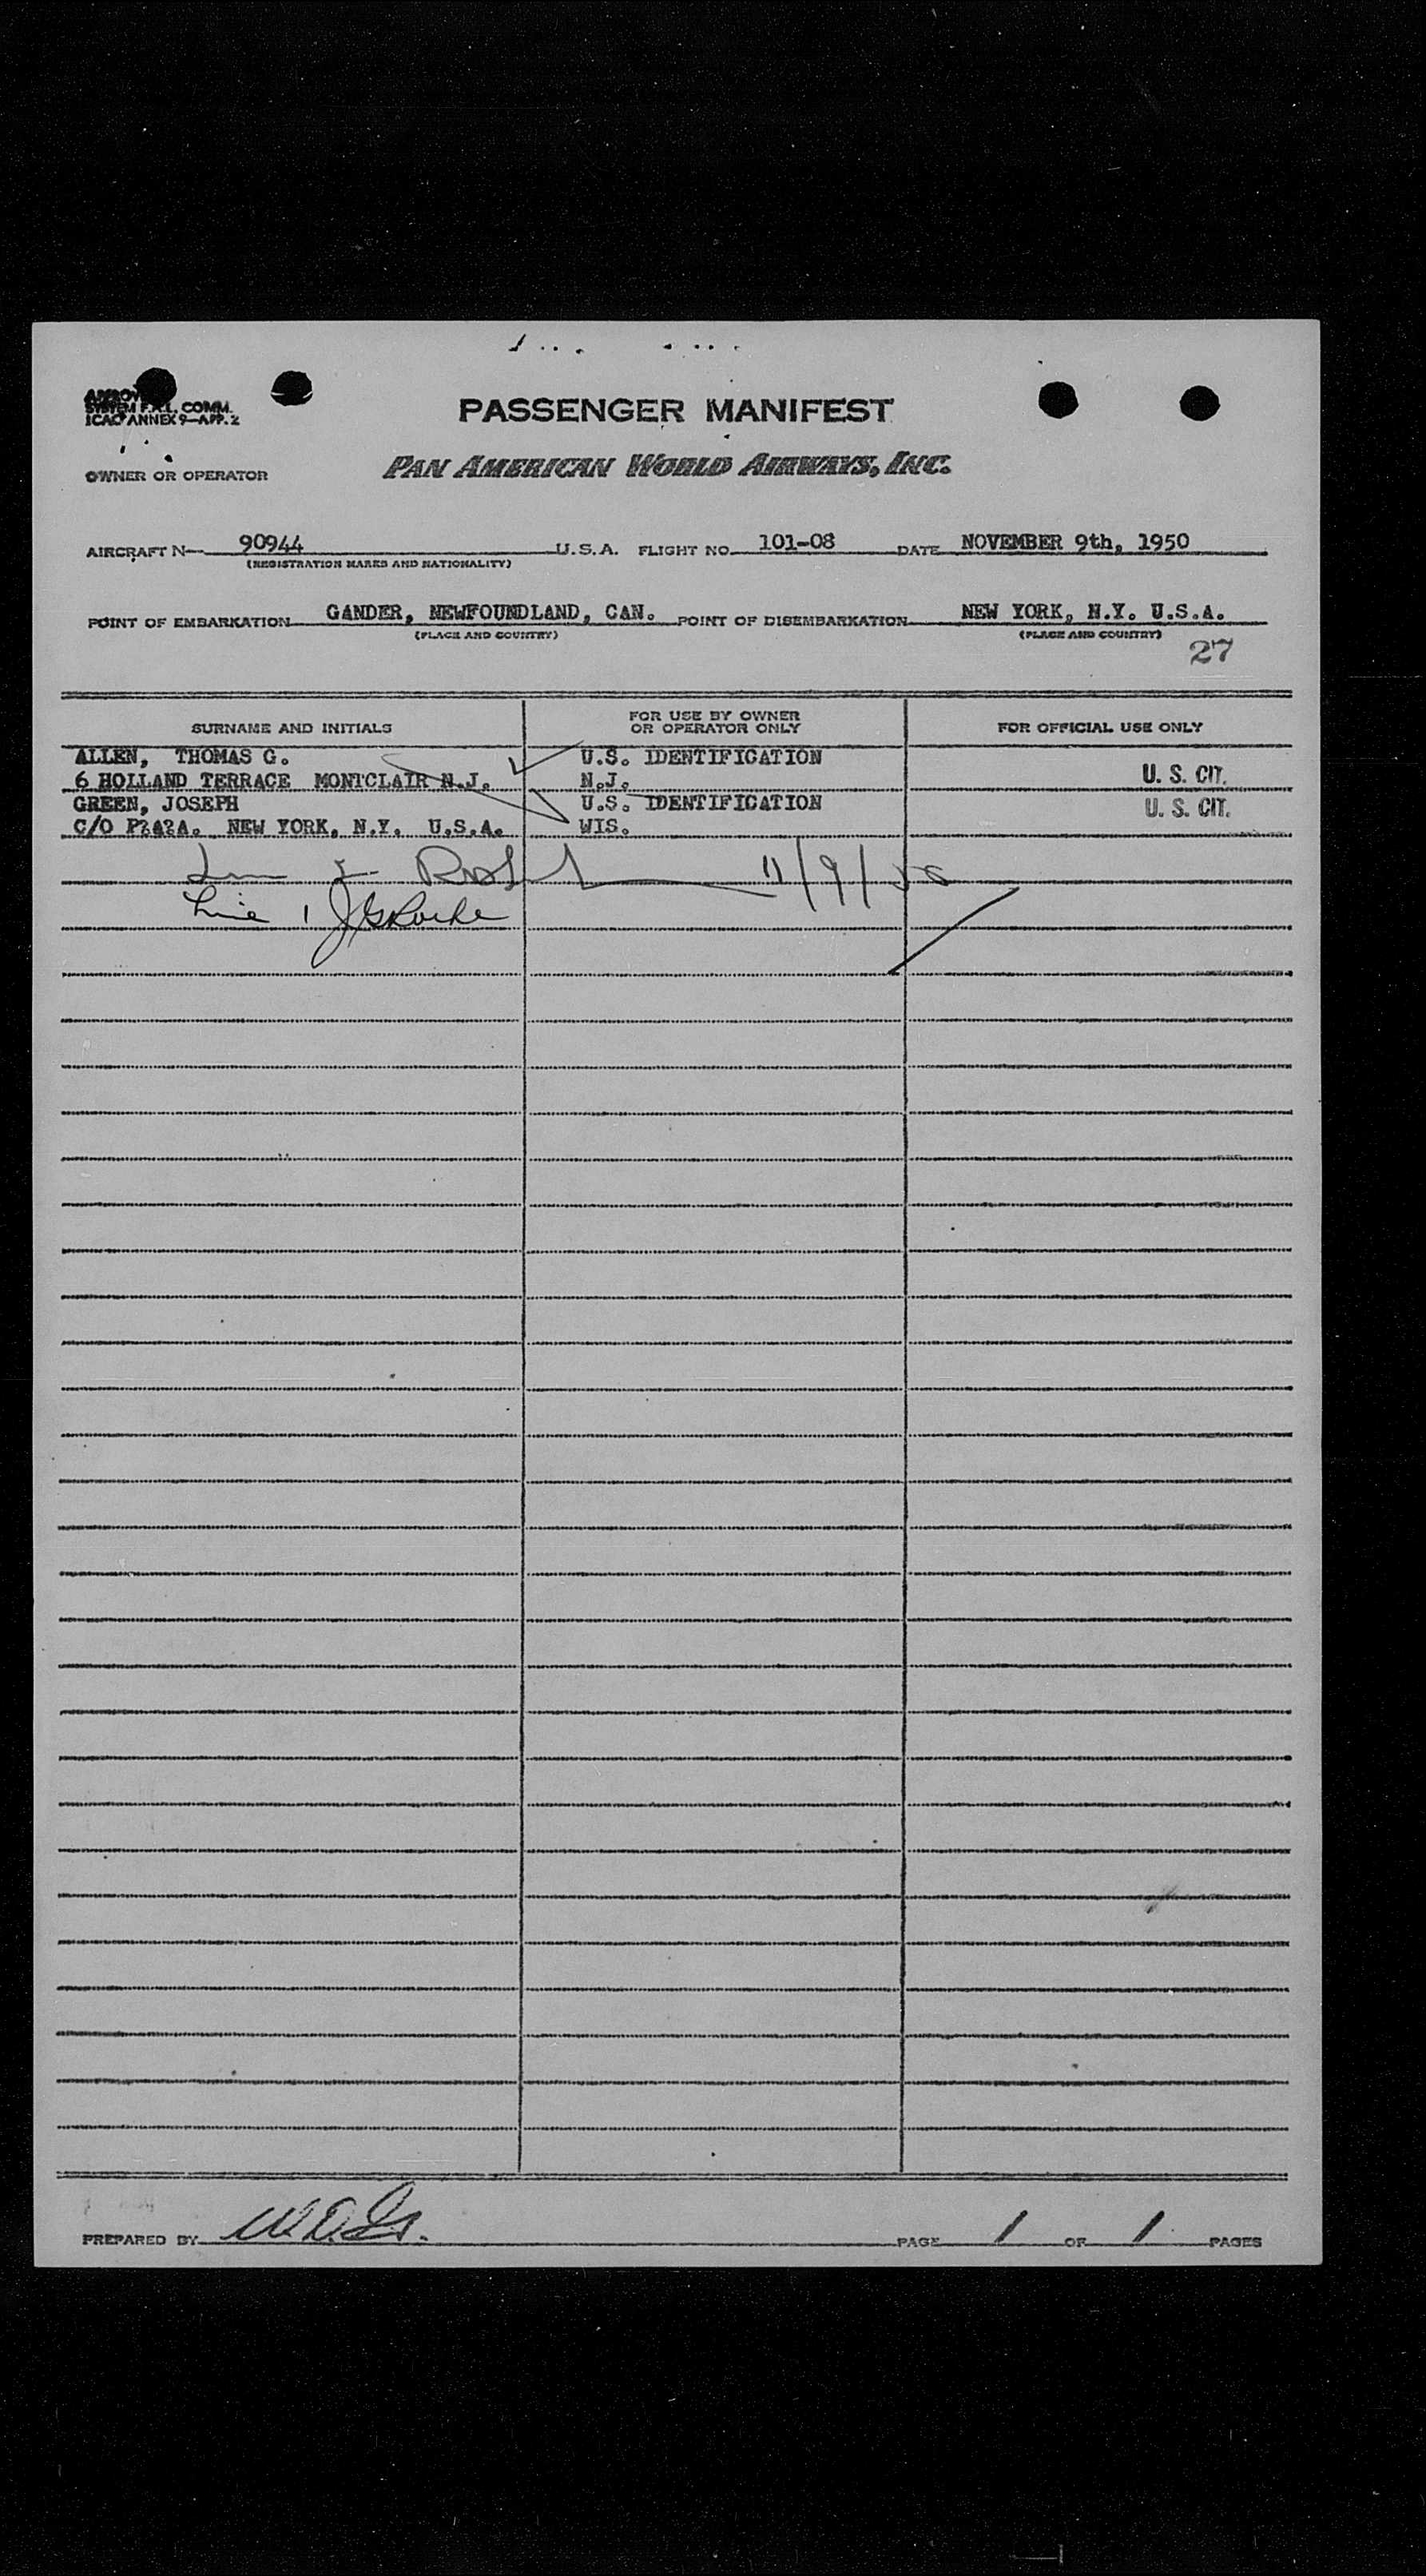 APPROVED
SYSTEM F.A.L. COMM.
ICAO ANNEX 9—APP. 2
PASSENGER MANIFEST
OWNER OR OPERATOR PAN AMERICAN WORLD AIRWAYS, INC.
AIRCRAFT N— 90944 U.S.A. FLIGHT NO. 101-08 DATE NOVEMBER 9th, 1950
(REGISTRATION MARKS AND NATIONALITY)
POINT OF EMBARKATION GANDER, NEWFOUNDLAND, CAN. POINT OF DISEMBARKATION NEW YORK, N.Y. U.S.A.
(PLACE AND COUNTRY) (PLACE AND COUNTRY)
27
SURNAME AND INITIALS FOR USE BY OWNER OR OPERATOR ONLY FOR OFFICIAL USE ONLY
ALLEN, THOMAS G. U.S. IDENTIFICATION
6 HOLLAND TERRACE MONTCLAIR N.J. N.J. U. S. CIT.
GREEN, JOSEPH U.S. IDENTIFICATION U. S. CIT.
C/O P?A?A. NEW YORK, N.Y. U.S.A. WIS.
11/9/50
Line 1
PREPARED BY PAGE 1 OF 1 PAGES